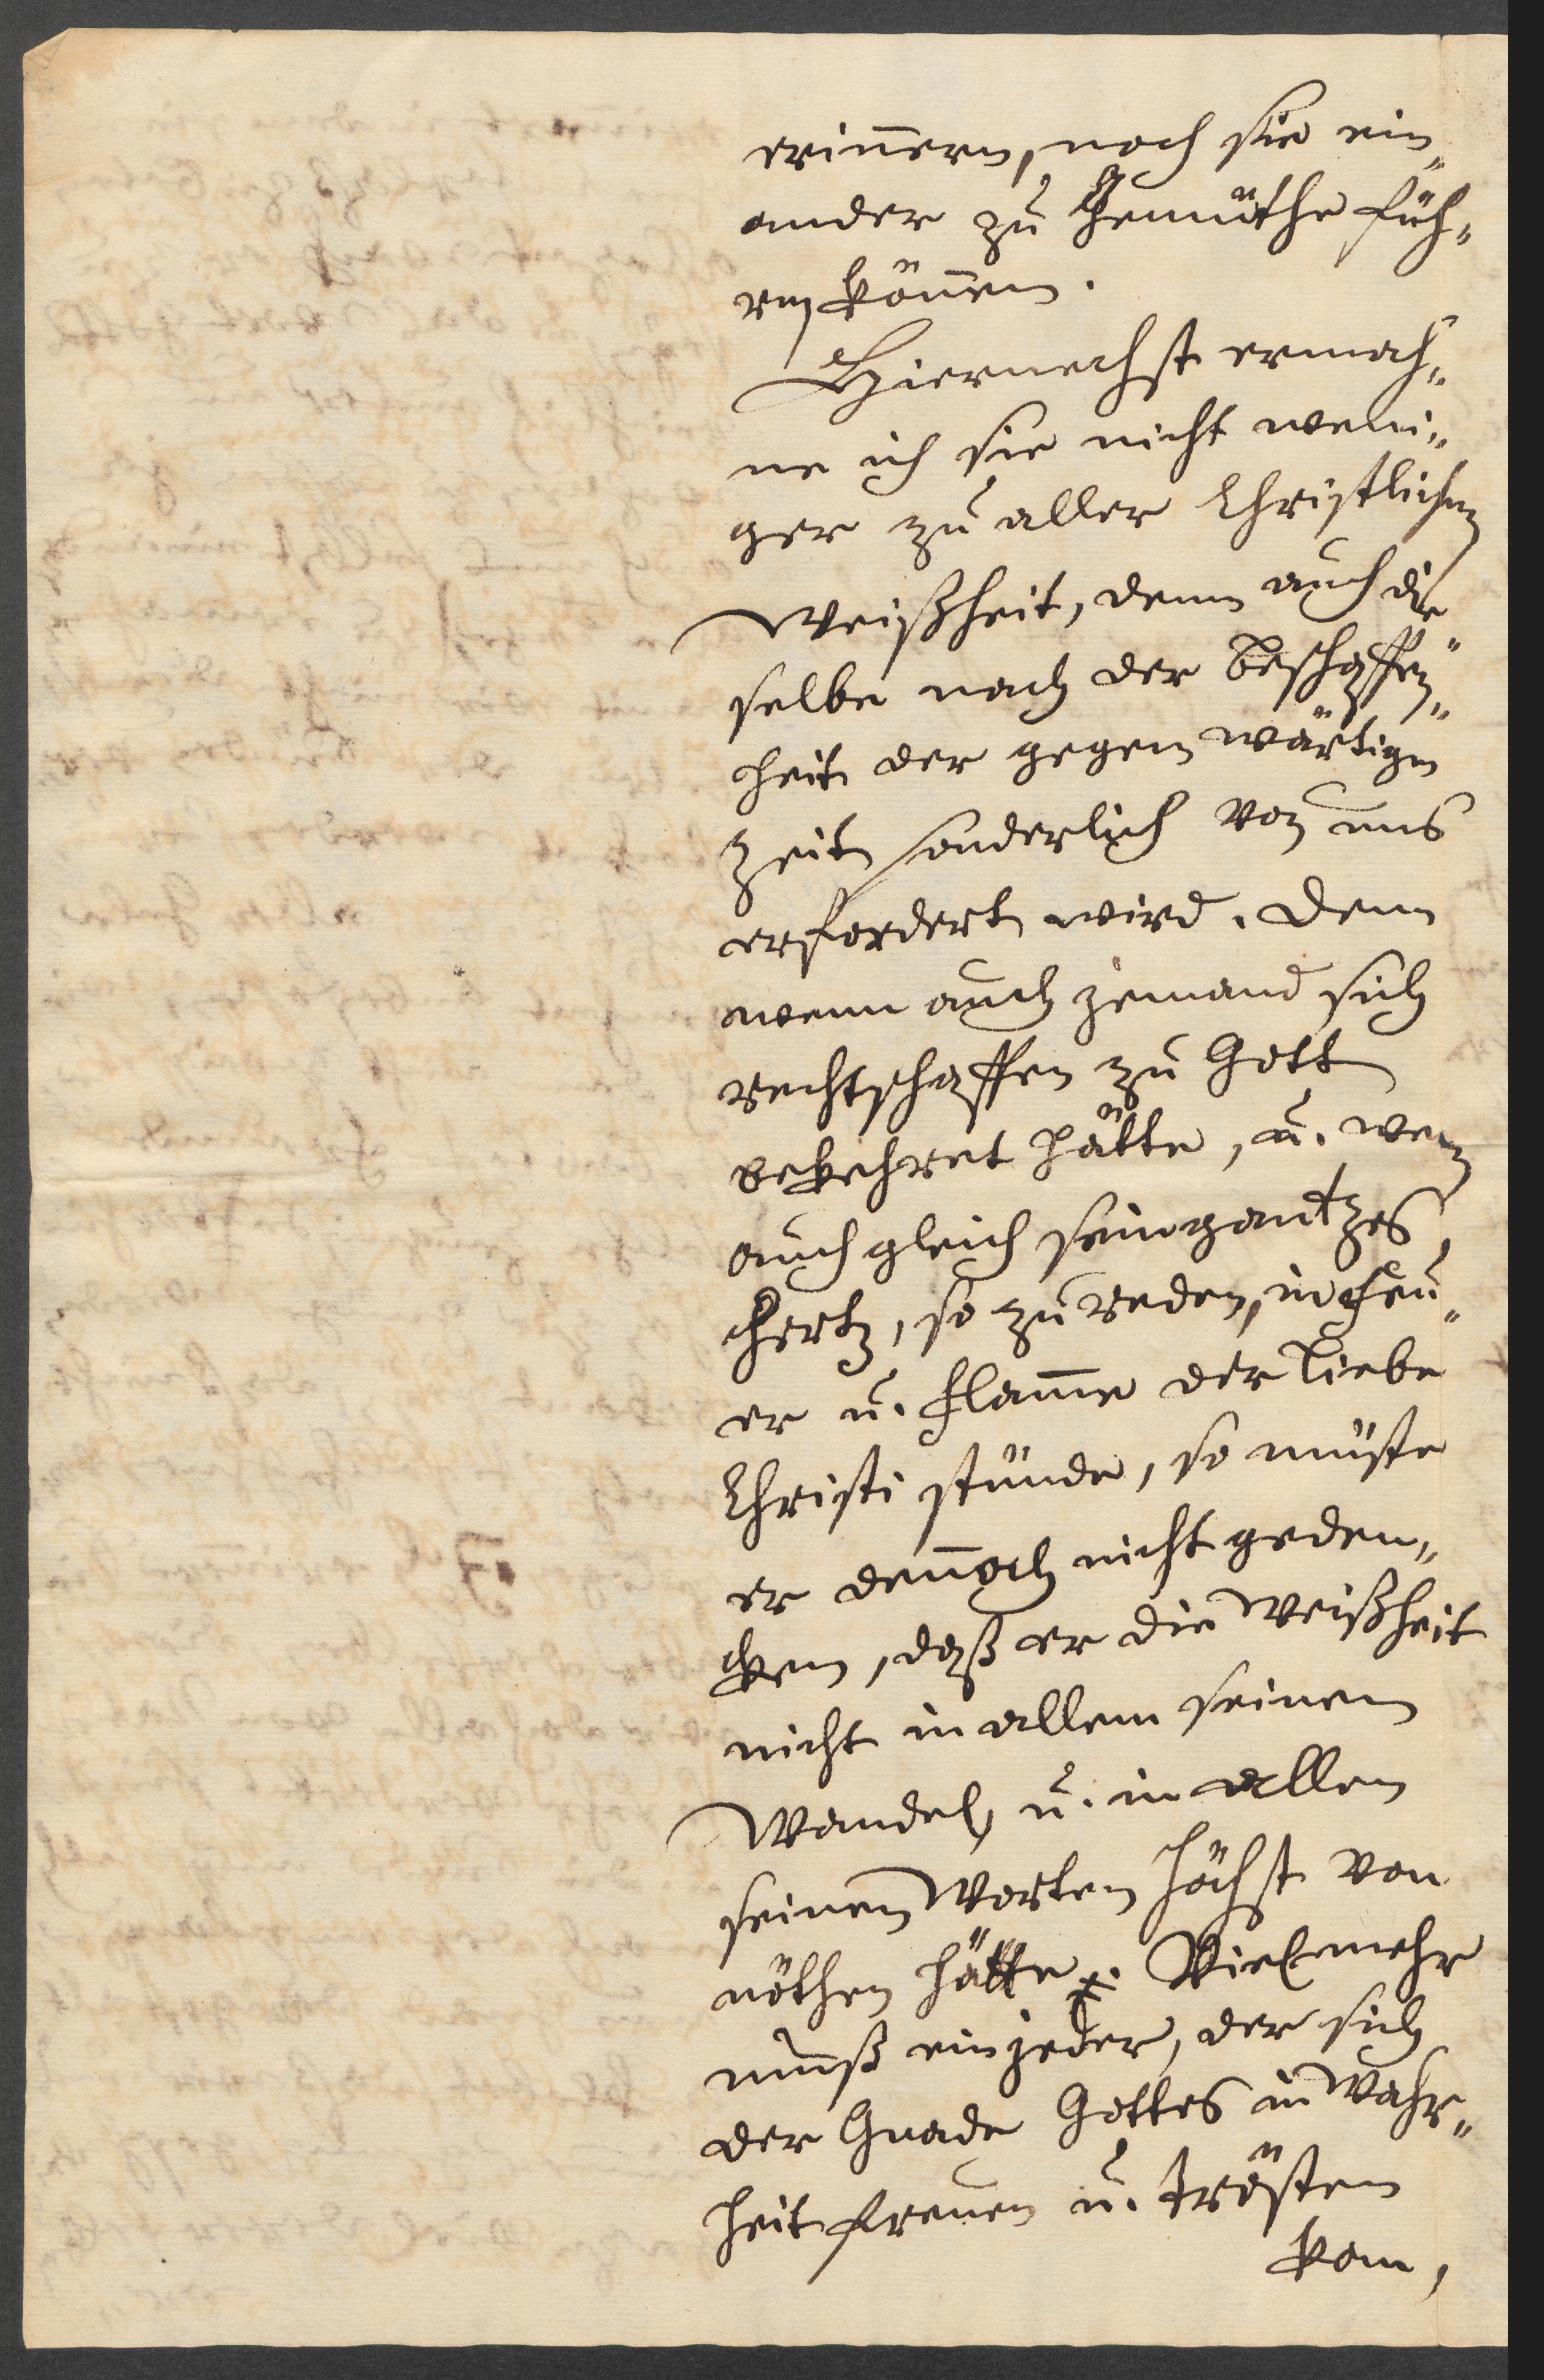 erin̄ern, noch sie ein„
ander zu Gemüthe füh„
ren kön̄en.
Hiernechst ermah„
ne ich sie nicht weni„
ger zu aller Christlichen
Weißheit, denn auch die„
selbe nach der beschaffen„
heit der gegenwärtigen
Zeit sonderlich von uns
erfordert wird. Denn
wenn auch jemand sich
rechtschaffen zu Gott
bekehret hätte, u. wenn
auch gleich sein gantzes
Hertz, so zu reden, in Feu„
er u. Flam̄e der Liebe
Christi stünde, so müste
er den̄och nicht geden„
cken, daß er die Weißheit
nicht in allem seinem
Wandel, u. in allen
seinen Worten höchst von
nöthen hätte. Vielmehr
muß ein jeder, der sich
der Gnade Gottes in Wahr„
heit freuen u. trösten
kan,